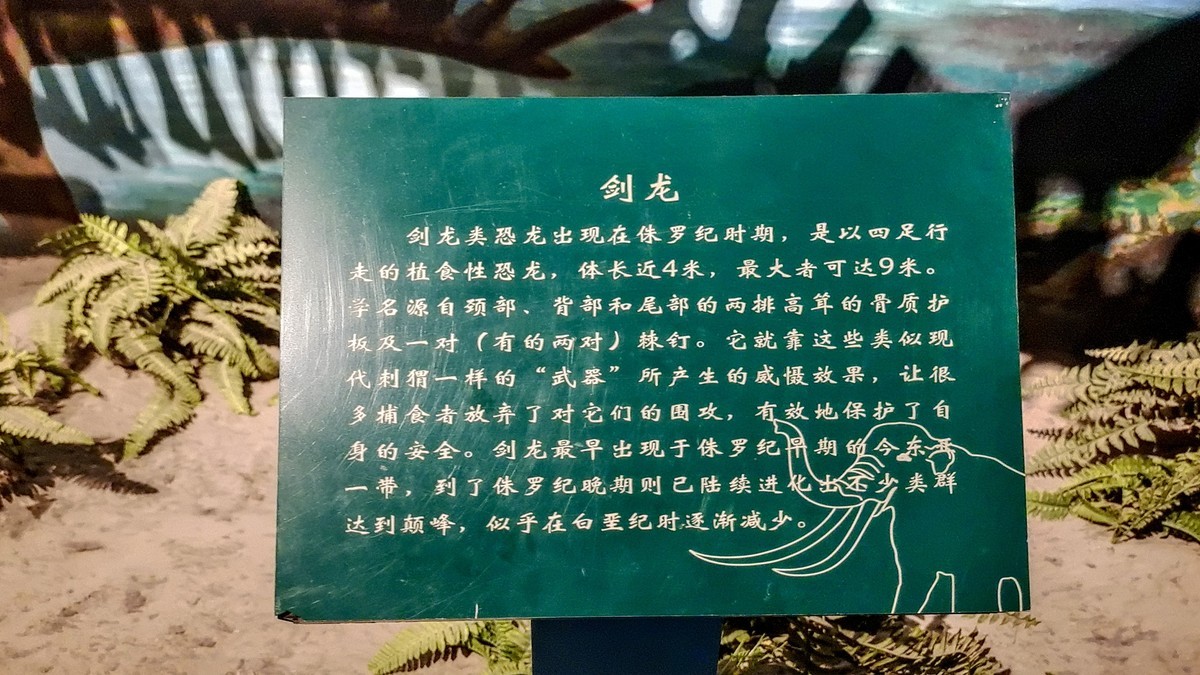 剑龙
剑龙类恐龙出现在侏罗纪时期，是以四足行
走的植食性恐龙，体长近4米，最大者可达9米。
学名源自颈部、背部和尾部的两排高耸的骨质护
板及一对（有的两对）棘钉。它就靠这些类似现
代刺猬一样的“武器”所产生的威慑效果，让很
多捕食者放弃了对它们的围攻，有效地保护了自
身的安全。剑龙最早出现于侏罗纪早期的今东亚
一带，到了侏罗纪晚期则已陆续进化出不少类群
达到颠峰，似乎在白垩纪时逐渐减少。